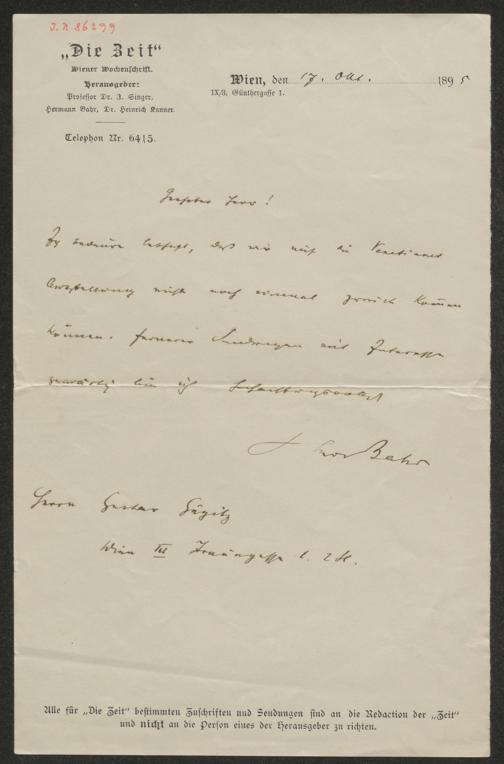 J.N. 86299
„Die Zeit“
Wiener Wochenschrift.
Herausgeber:
Professor Dr. J. Singer,
Hermann Bahr, Dr. Heinrich Kanner.
Telephon Nr. 6415.
Wien, den 17. Okt. 1895
IX/3, Günthergasse 1.
Geehrter Herr!
Ich bedaure lebhaft, daß wir auf die Venetianer
Ausstellung nicht noch einmal zurück kommen
können. Ferneren Sendungen mit Interesse
gewärtig bin ich hochachtungsvollst
Bahr
Herrn Gustav Gugitz
Wien III
Alle für „Die Zeit“ bestimmten Zuschriften und Sendungen sind an die Redaction der „Zeit“
und nicht an die Person eines der Herausgeber zu richten.